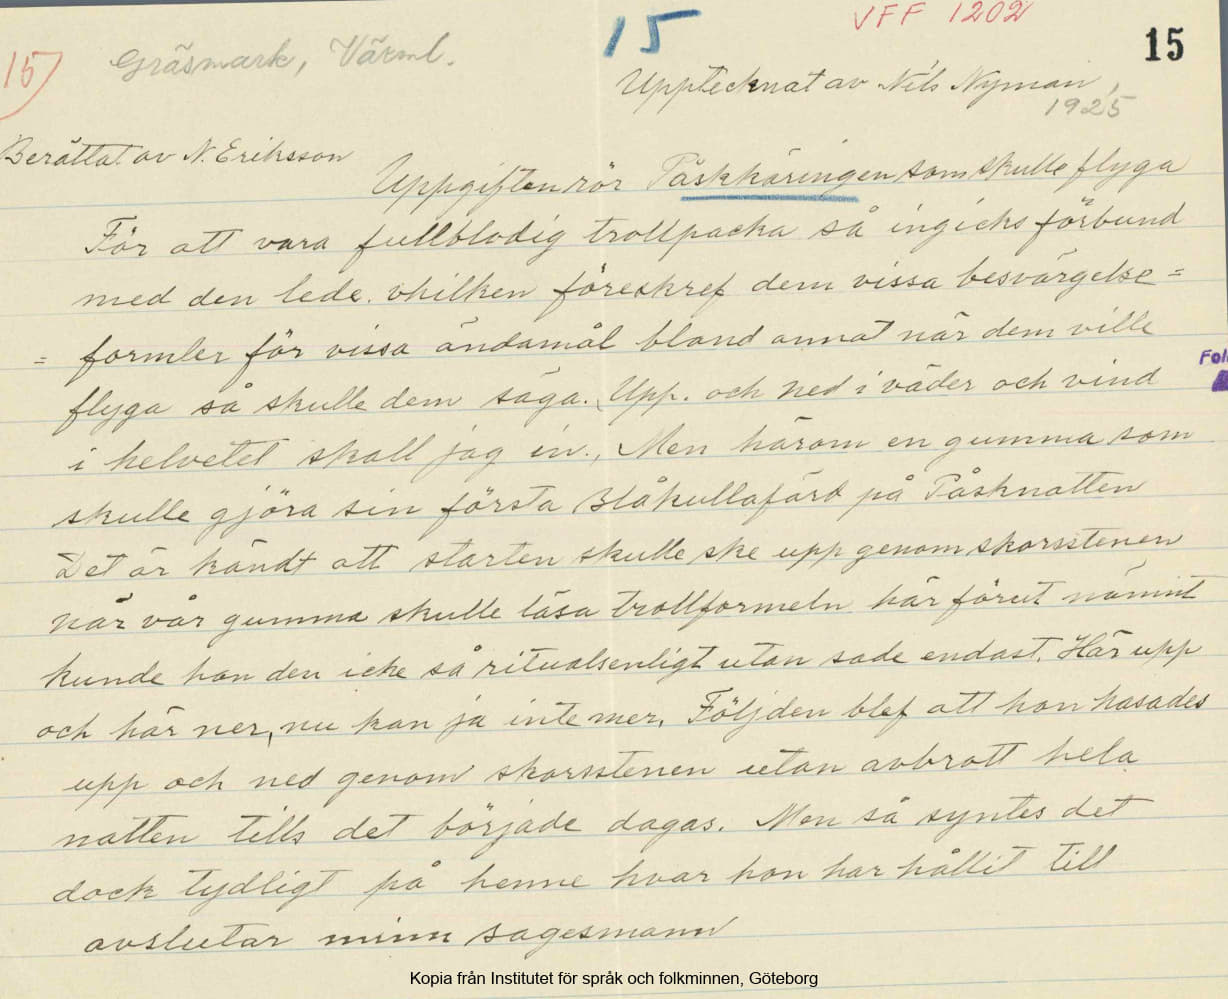 VFF 1202
15
15
15)
Gräsmark, Värml.
Upptecknat av Nils Nyman,
1925
Berättat av N. Eriksson
Uppgiften rör Påskkäringen som skulle flyga
För att vara fullblodig trollpacka så ingicks förbund
med den lede. vhilken föreskref dem vissa besvärgelse=
= formler för vissa ändamål bland annat när dem ville
flyga så skulle dem säga. Upp. och ned i väder och vind
i helvetet skall jag in., Men härom en gumma som
skulle gjöra sin första Blåkullafärd på Påsknatten
Det är kändt att starten skulle ske upp genom skorsstenen
når vår gumma skulle läsa trollformeln här förut nämnt
kunde hon den icke så ritualsenligt utan sade endast. Här upp
och här ner, nu kan ja inte mer. Följden blef att hon hasades
upp och ned genom skorsstenen utan avbrott hela
natten tills det började dagas. Men så syntes det
dock tydligt på henne hvar hon har hållit till
avslutar minn sagesmann
Fol
Kopia från Institutet för språk och folkminnen, Göteborg